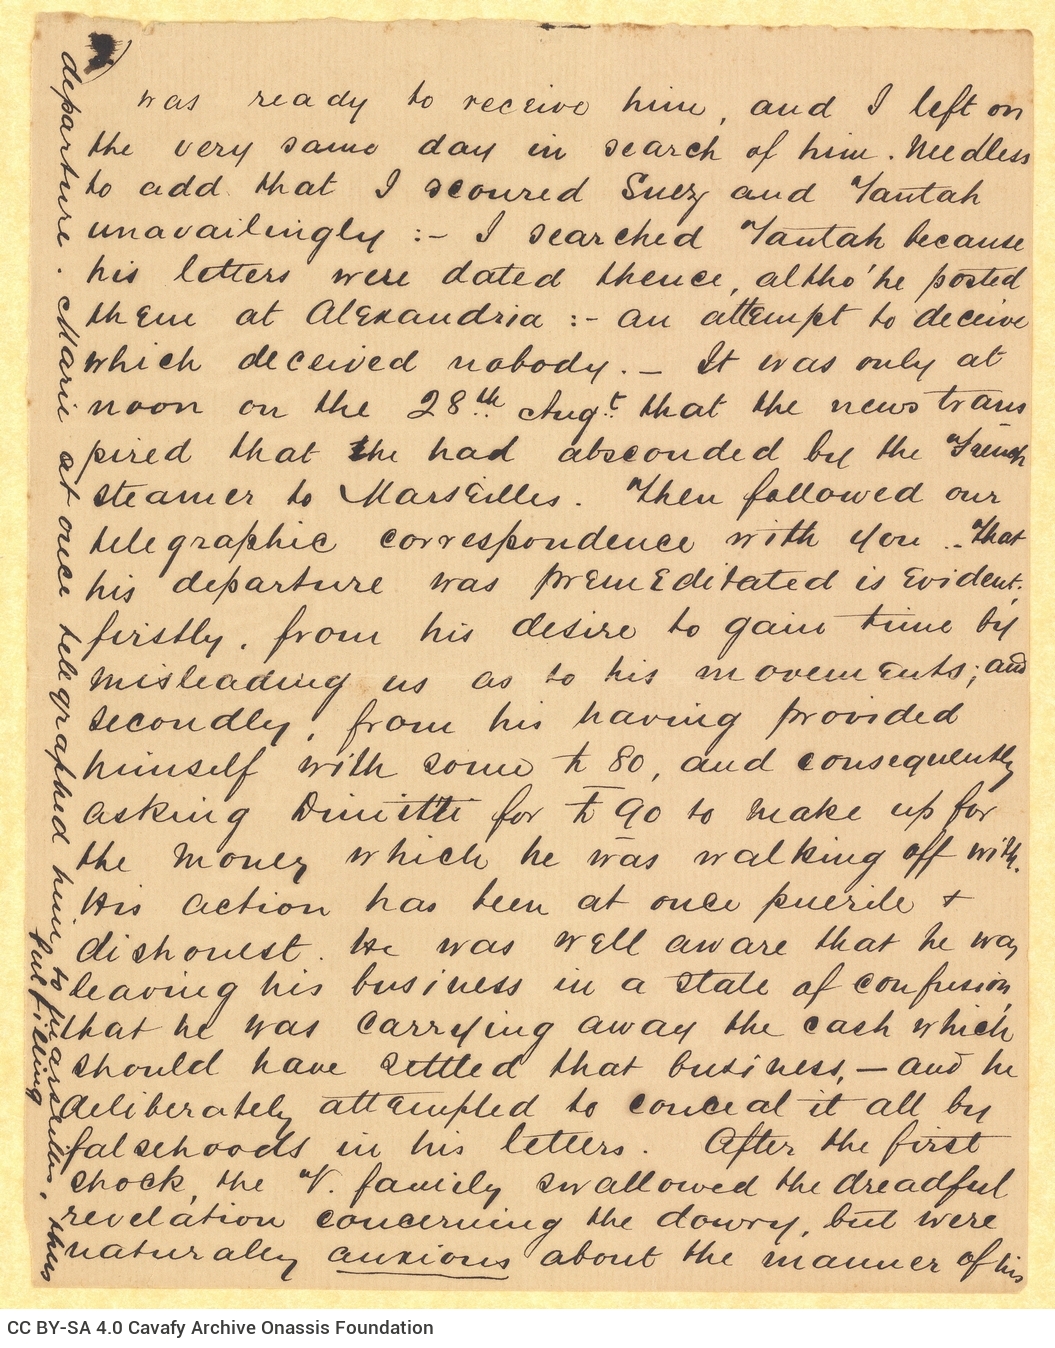 was ready to receive him, and I left on
the very same day in search of him. Needless
to add that I scoured Suez and Tantah
unavailingly :- I searched Tantah because
his letters were dated thence, altho' he posted
them at Alexandria :- an attempt to deceive
which deceived nobody. - It was only at
noon on the 28th Augt that the news trans
pired that he had absconded by the French
steamer to Marseilles. Then followed our
telegraphic correspondence with you. - That
his departure was premeditated is evident;
firstly, from his desire to gain time by
misleading us as to his movements; and
secondly, from his having provided
himself with some £ 80, and consequently
asking Dinitti for £ 90 to make up for
the money which he was walking off with.
His action has been at once puerile +
dishonest. He was well aware that he was
leaving his business in a state of confusion,
that he was carrying away the cash which
should have settled that business, - and he
deliberately attempted to conceal it all by
falsehoods in his letters. After the first
shock, the V. family swallowed the dreadful
revelation concerning the dowry, but were
naturaly anxious about the manner of his
departure. Marie at once telegraphed him to Marseilles, thus
fulfilling
CC BY-SA 4.0 Cavafy Archive Onassis Foundation